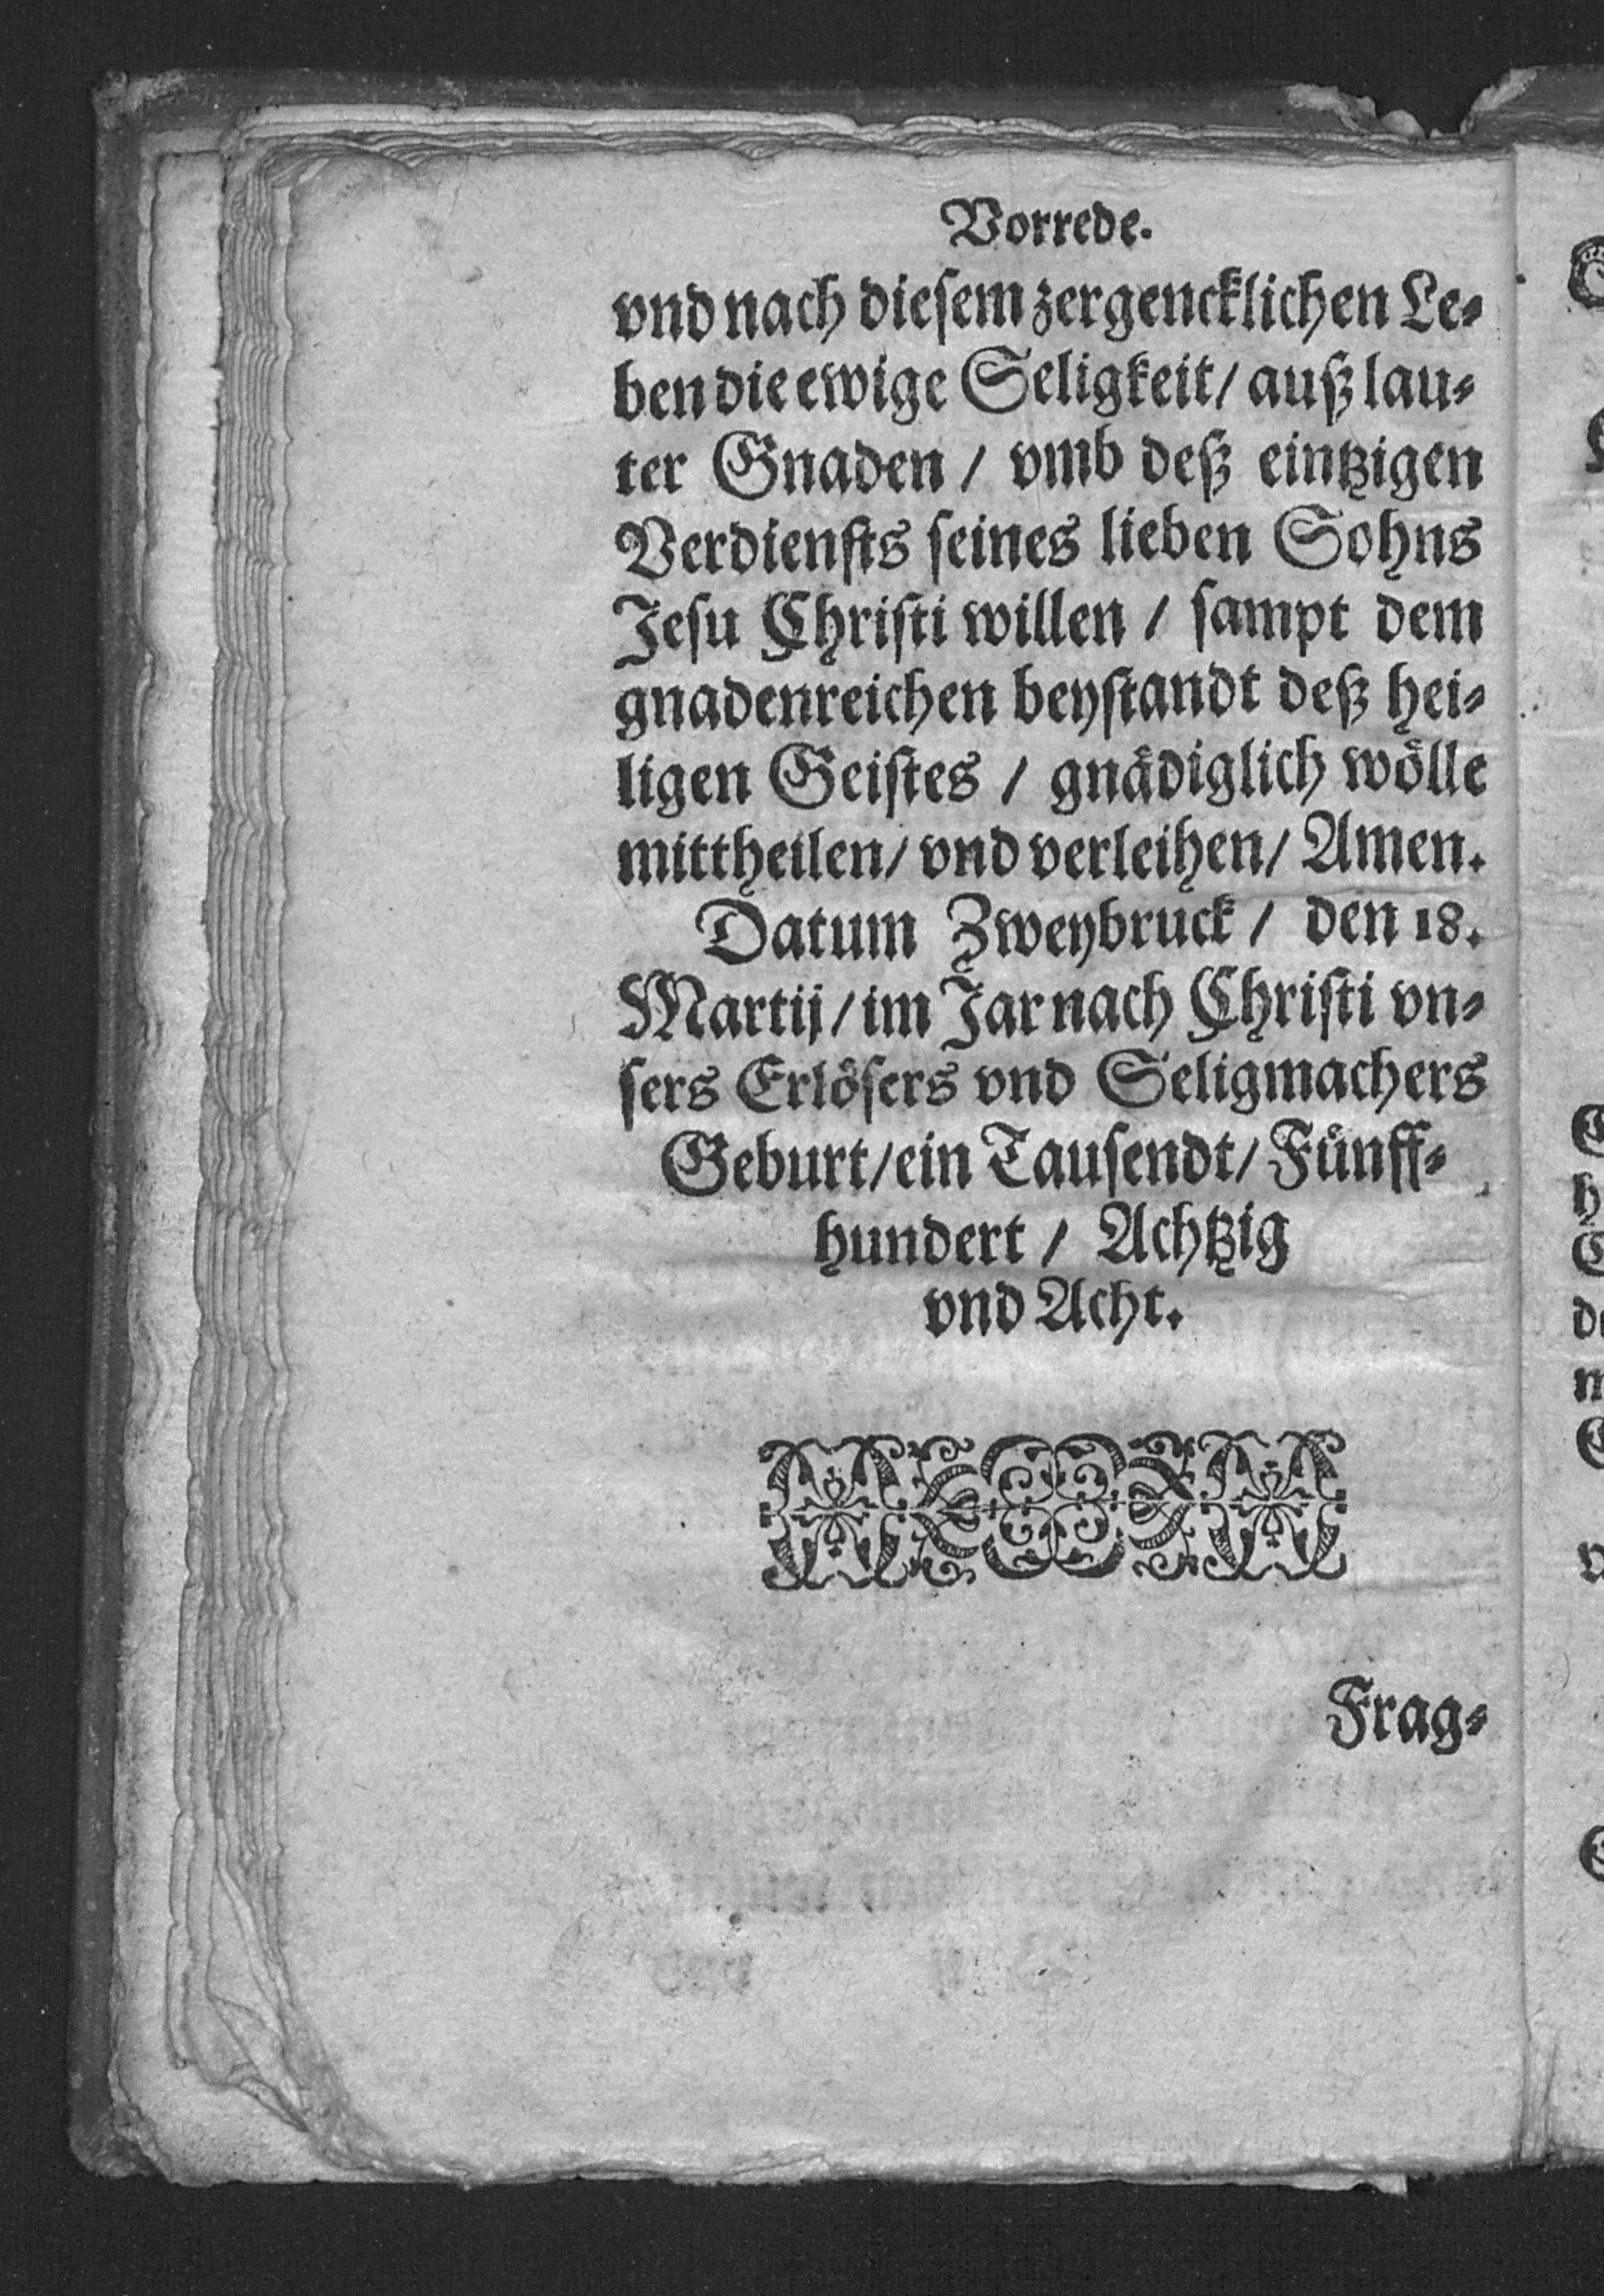 Vorrede.
vnd nach diesem zergencklichen Le⸗
ben die ewige Seligkeit/ auß lau⸗
ter Gnaden / vmb deß eintzigen
Verdiensts seines lieben Sohns
Jesu Christi willen / sampt dem
gnadenreichen beystandt deß hei⸗
ligen Geistes / gnådiglich wőlle
mittheilen/ vnd verleihen/ Amen.
Datum Zweybruck / den 18.
Martij/ im Jar nach Christi vn⸗
sers Erlősers vnd Seligmachers
Geburt/ ein Tausendt/ Fünff⸗
hundert / Achtzig
vnd Acht.
Frag⸗